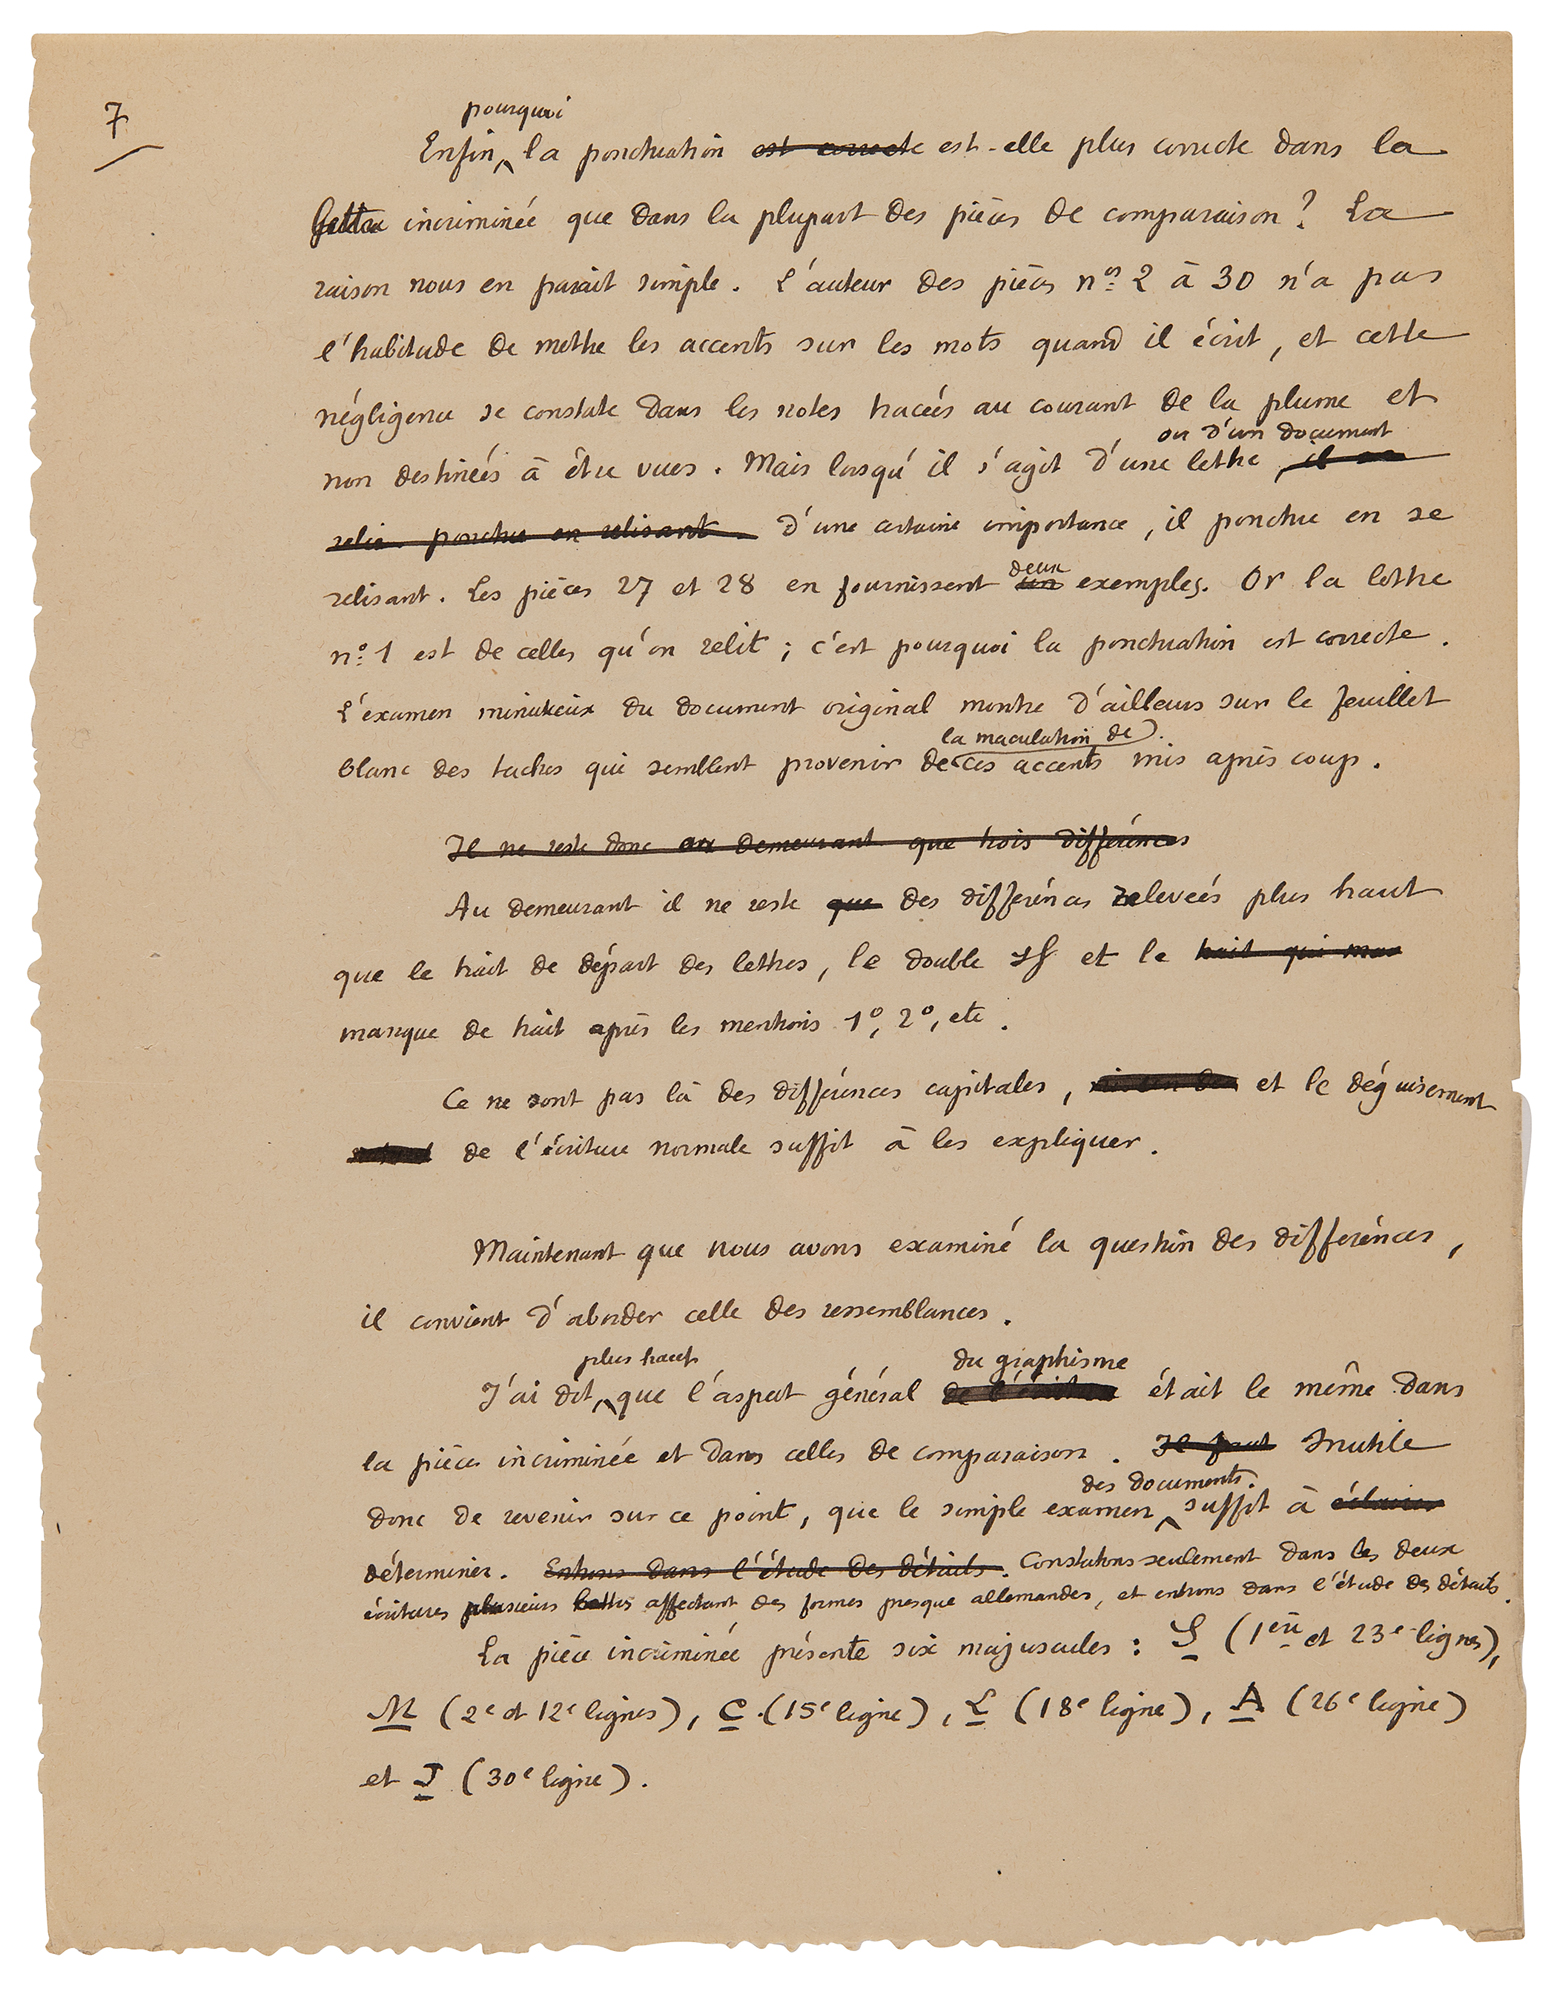 7
pourquoi
Enfin, la ponctuation est correcte est-elle plus correcte dans la
lettre incriminée que dans la plupart des pièces de comparaison ? La
raison nous en parait simple. L'auteur des pièces nos 2 à 30 n'a pas
l'habitude de mettre les accents sur les mots quand il écrit, et cette
négligence se constate dans les notes tracées au courant de la plume et
ou d'un document
non destinées à être vues. Mais lorsqu'il s'agit d'une lettre, il se
relie ponctue en relisant. d'une certaine importance, il ponctue en se
deux
relisant. Les pièces 27 et 28 en fournissent un exemples. Or la lettre
no 1 est de celles qu'on relit ; c'est pourquoi la ponctuation est correcte.
L'examen minutieux du document original montre d'ailleurs sur le feuillet
la maculation de
blanc des taches qui semblent provenir de ces accents mis après coup.
Il ne reste donc au demeurant que trois différences
Au demeurant il ne reste que des différences relevées plus haut
que le trait de départ des lettres, le double ss et le trait qui mar
manque de trait après les mentions 1o, 2o, etc.
Ce ne sont pas là des différences capitales, et le déguisement
de l'écriture normale suffit à les expliquer.
Maintenant que nous avons examiné la question des différences,
il convient d'aborder celle des ressemblances.
plus haut du graphisme
J'ai dit, que l'aspect général de l'écriture était le même dans
la pièce incriminée et dans celles de comparaison. Il faut Inutile
des documents.
donc de revenir sur ce point, que le simple examen suffit à éclairer
déterminer. Entrons dans l'étude des détails. Constatons seulement dans les deux
écritures plusieurs lettres affectant des formes presque allemandes, et entrons dans l'étude des détails.
La pièce incriminée présente six majuscules : S (1ère et 23e lignes),
M (2e et 12e lignes), C (15e ligne), L (18e ligne), A (26e ligne)
et J (30e ligne).